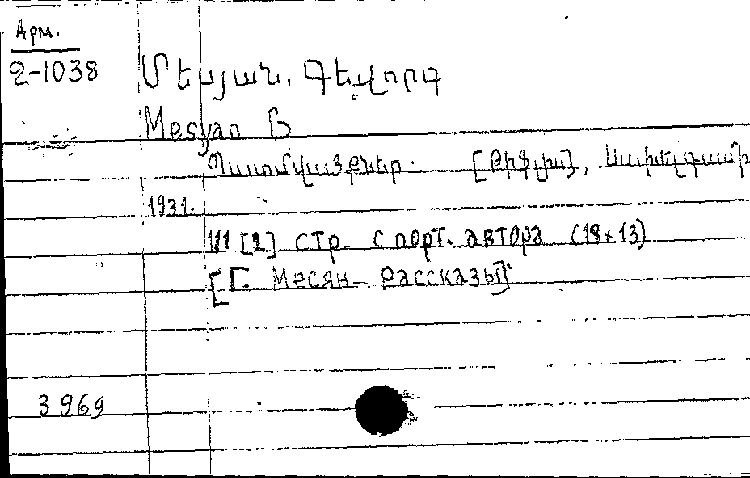 Арм.
2-1038
Մեսյան, Գեվորգ
Mesyan G
Պատմվածքներ. [Թիֆլիս],
1931.
[2] стр. с порт. автора (18x13)
[Г. Месян Рассказы]
3969